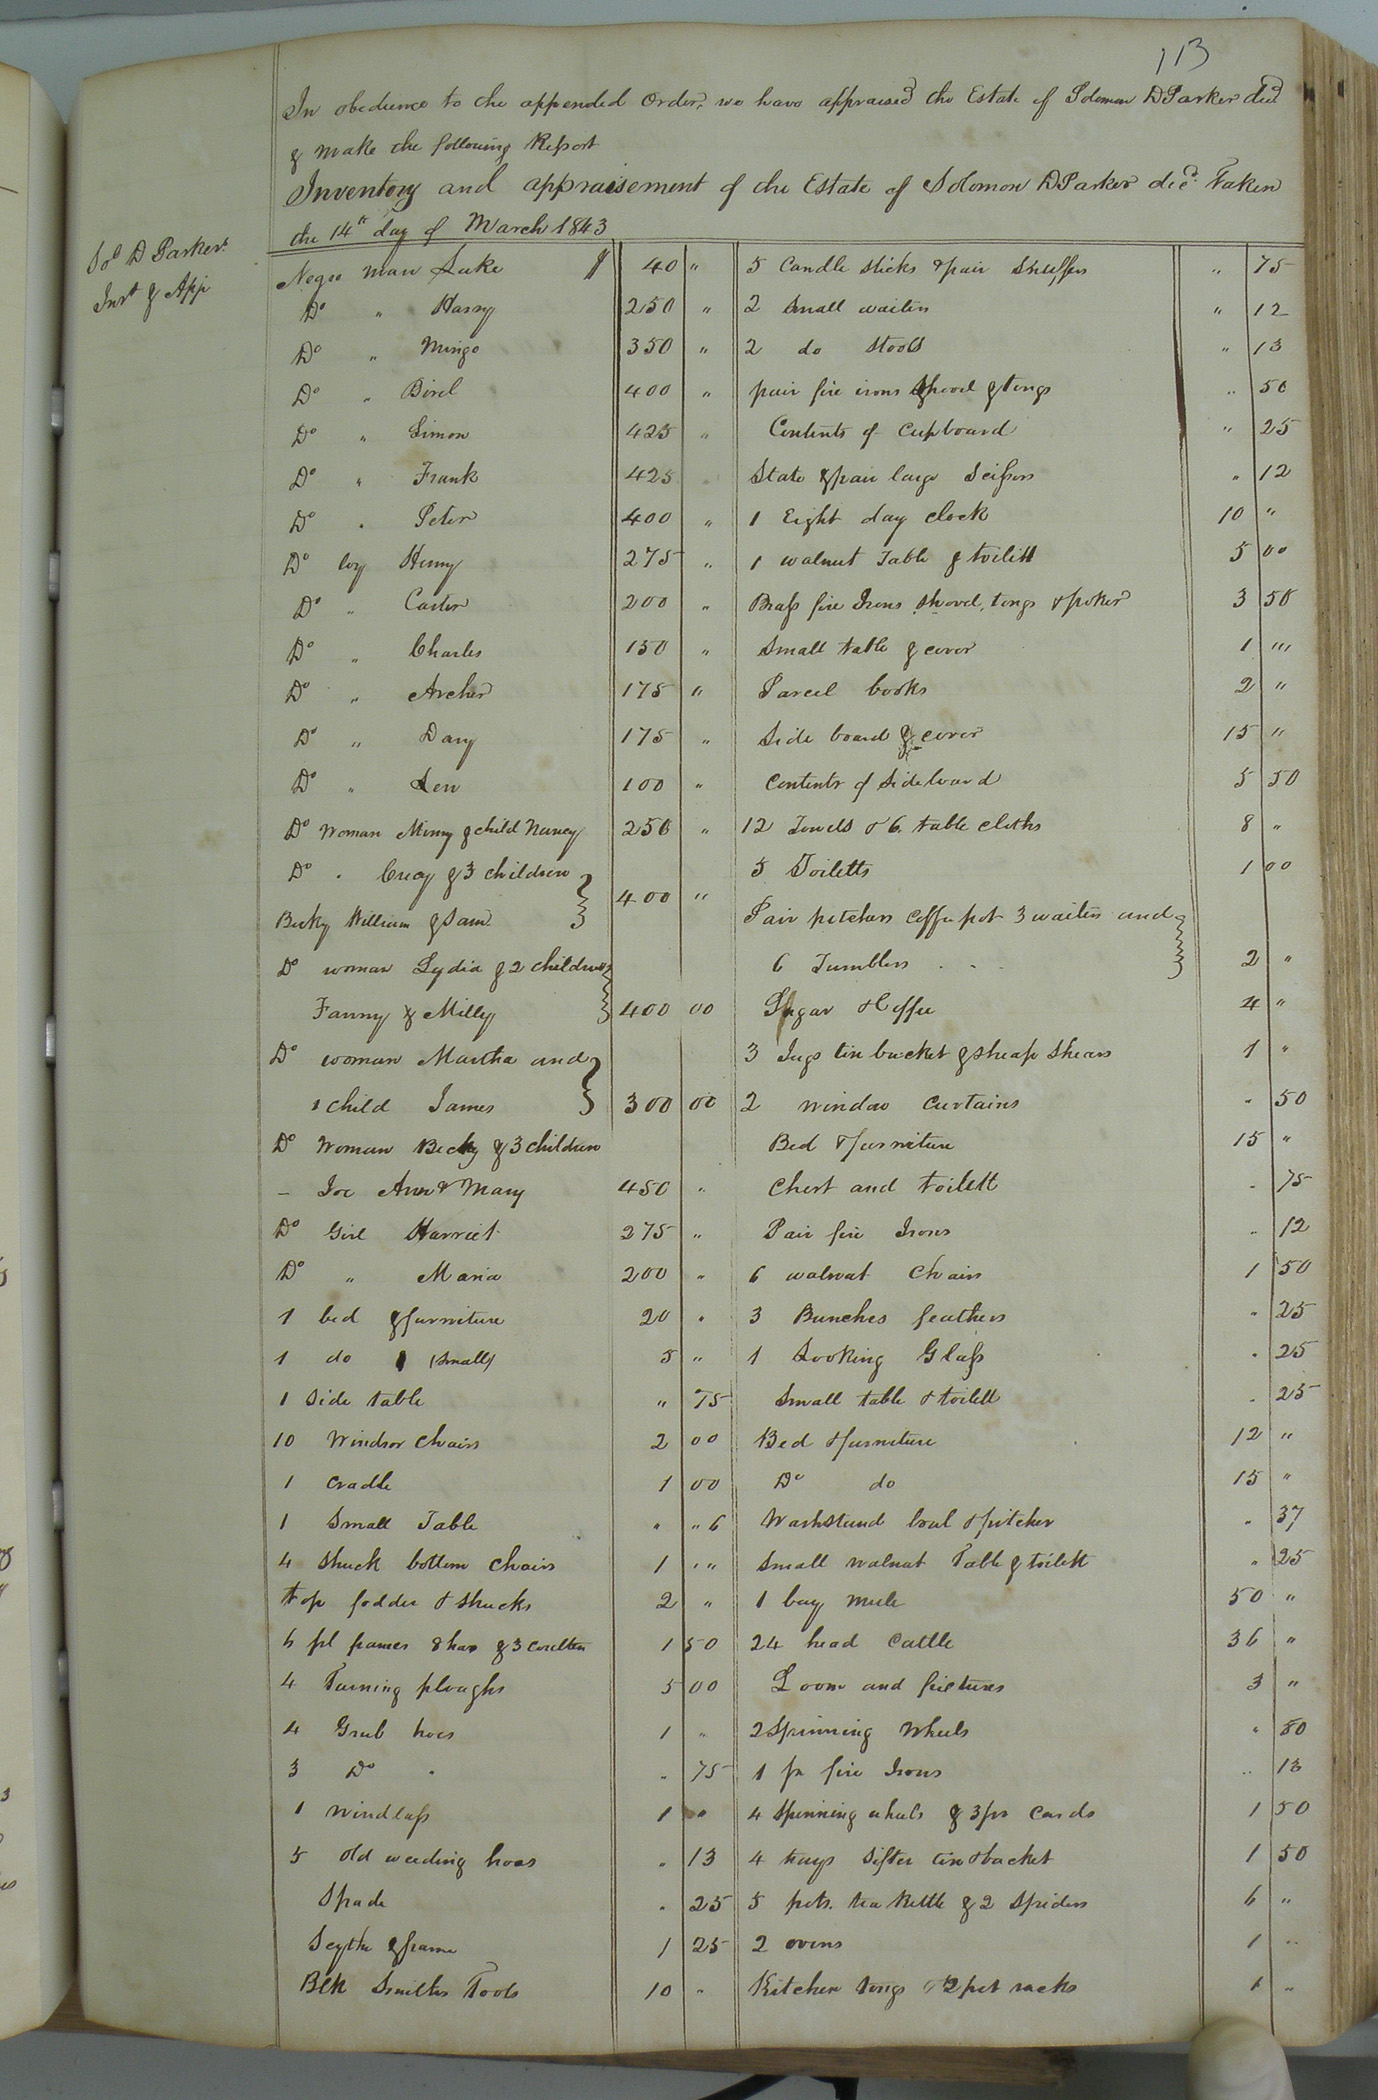 113
In obedience to the appended Order, we have appraised the Estate of Solomon D Parker decd
& make the following Report
Inventory and appraisement of the Estate of Solomon D Parker decd. Taken
the 14th day of March 1843
Sol D Parkers
Invt & App
Negro man Luke $ 40 "
Do " Harry 250 "
Do " Mingo 350 "
Do " Birel 400 "
Do " Simon 425 "
Do " Frank 425
Do " Peter 400 "
Do boy Henry 275 "
Do " Carter 200 "
Do " Charles 150 "
Do " Archer 175 "
Do " Davy 175 "
Do " Len 100 "
Do Woman Minny & child Nancy 250 "
Do " Crecy & 3 children
Becky William & Sam 400 "
Do woman Lydia & 2 children
Fanny & Milly 400 00
Do woman Martha and
1 child James 300 00
Do Woman Becky & 3 children
– Joe Ann & Mary 450 "
Do Girl Harriet 275 "
Do " Maria 200 "
1 bed & furniture 20 "
1 do (small) 5 "
1 Side table " 75
10 Windsor Chairs 2 00
1 Cradle 1 00
1 Small Table " " 6
4 Shuck bottom Chairs 1 " "
top fodder & shucks 2 "
6 pl frames 8 hao & 3 coulters 1 50
4 Turning ploughs 5 00
4 Grub hoes 1 "
3 Do " " 75
1 Windlass 1 "
5 old weeding hoes " 13
Spade " 25
Scythe & frame 1 25
Blk Smiths Tools 10 "
5 Candle sticks & pair Snuffers " 75
2 Small waiters " 12
2 do stools " 13
pair fire irons Shovel & tongs " 50
Contents of Cupboard " 25
Slate & pair large Scissors " 12
1 Eight day clock 10 "
1 walnut Table & toilett 5 00
Brass fire Irons Shovel, tongs & poker 3 50
Small table & cover 1 "
Parcel books 2 "
Side board & cover 15 "
Contents of Sideboard 5 50
12 Towels & 6 table cloths 8 "
5 Toiletts 1 00
Pair pitchers Coffee pot 3 waiters and
6 Tumblers 2 "
Sugar & Coffee 4 "
3 Jugs tin bucket & sheap shears 1 "
2 window curtains " 50
Bed & furniture 15 "
Chest and toilett " 75
Pair fire Irons " 12
6 walnut Chairs 1 50
3 Bunches feathers " 25
1 Looking Glass " 25
Small table & toilett " 25
Bed & furniture 12 "
Do do 15 "
Washstand boal & pitcher " 37
Small walnut Table & toilett " 25
1 bay mule 50 "
24 head Cattle 36 "
Loom and fixtures 3 "
2 Spinning Wheels " 50
1 pr fire Irons " 13
4 Spinning wheels & 3 pr Cards 1 50
4 trays Sifter tin bucket 1 50
5 pots. tea kettle & 2 Spiders 6 "
2 ovens 1 "
Kitchen tongs & 2 pot racks 1 "